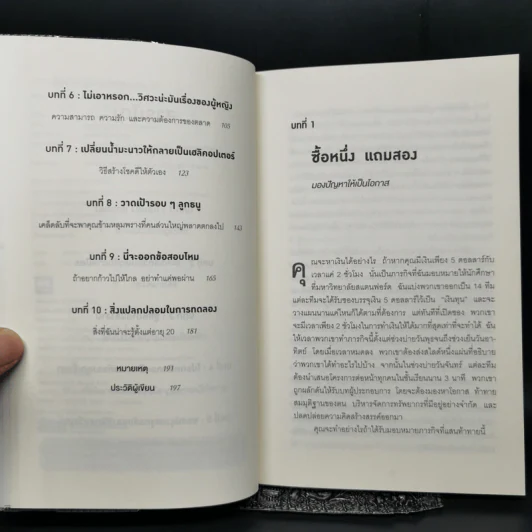 บทที่ 6 : ไม่เอาหรอก...วิศวะน่ะมันเรื่องของผู้หญิง
ความสามารถ ความรัก และความต้องการของตลาด 105
บทที่ 7 : เปลี่ยนน้ำมะนาวให้กลายเป็นเฮลิคอปเตอร์
วิธีสร้างโชคดีให้ตัวเอง 123
บทที่ 8 : วาดเป้ารอบ ๆ ลูกธนู
เคล็ดลับที่จะพาคุณข้ามหลุมพรางที่คนส่วนใหญ่พลาดตกลงไป 143
บทที่ 9 : นี่จะออกข้อสอบไหม
ถ้าอยากก้าวไปให้ไกล อย่าทำแค่พอผ่าน 165
บทที่ 10 : สิ่งแปลกปลอมในการทดลอง
สิ่งที่ฉันน่าจะรู้ตั้งแต่อายุ 20 181
หมายเหตุ 191
ประวัติผู้เขียน 197
บทที่ 1
ซื้อหนึ่ง แถมสอง
มองปัญหาให้เป็นโอกาส
คุณจะหาเงินได้อย่างไร ถ้าหากคุณมีเงินเพียง 5 ดอลลาร์กับ
เวลาแค่ 2 ชั่วโมง นั่นเป็นภารกิจที่ฉันมอบหมายให้นักศึกษา
ที่มหาวิทยาลัยสแตนฟอร์ด ฉันแบ่งพวกเขาออกเป็น 14 ทีม
แต่ละทีมจะได้รับซองบรรจุเงิน 5 ดอลลาร์ไว้เป็น "เงินทุน" และจะ
วางแผนนานแค่ไหนก็ได้ตามที่ต้องการ แต่ทันทีที่เปิดซอง พวกเขา
จะมีเวลาเพียง 2 ชั่วโมงในการทำเงินให้ได้มากที่สุดเท่าที่จะทำได้ ฉัน
ให้เวลาพวกเขาทำภารกิจนี้ตั้งแต่ช่วงบ่ายวันพุธจนถึงช่วงเย็นวันอา-
ทิตย์ โดยเมื่อเวลาหมดลง พวกเขาต้องส่งสไลด์หนึ่งแผ่นที่อธิบาย
ว่าพวกเขาได้ทำอะไรไปบ้าง จากนั้นในช่วงบ่ายวันจันทร์ แต่ละทีม
ต้องนำเสนอโครงการต่อหน้าทุกคนในชั้นเรียนนาน 3 นาที พวกเขา
ถูกผลักดันให้รับบทผู้ประกอบการ โดยจะต้องมองหาโอกาส ท้าทาย
สมมุติฐานของตน บริหารจัดการทรัพยากรที่มีอยู่อย่างจำกัด และ
ปลดปล่อยความคิดสร้างสรรค์ออกมา
คุณจะทำอย่างไรถ้าได้รับมอบหมายภารกิจที่แสนท้าทายนี้